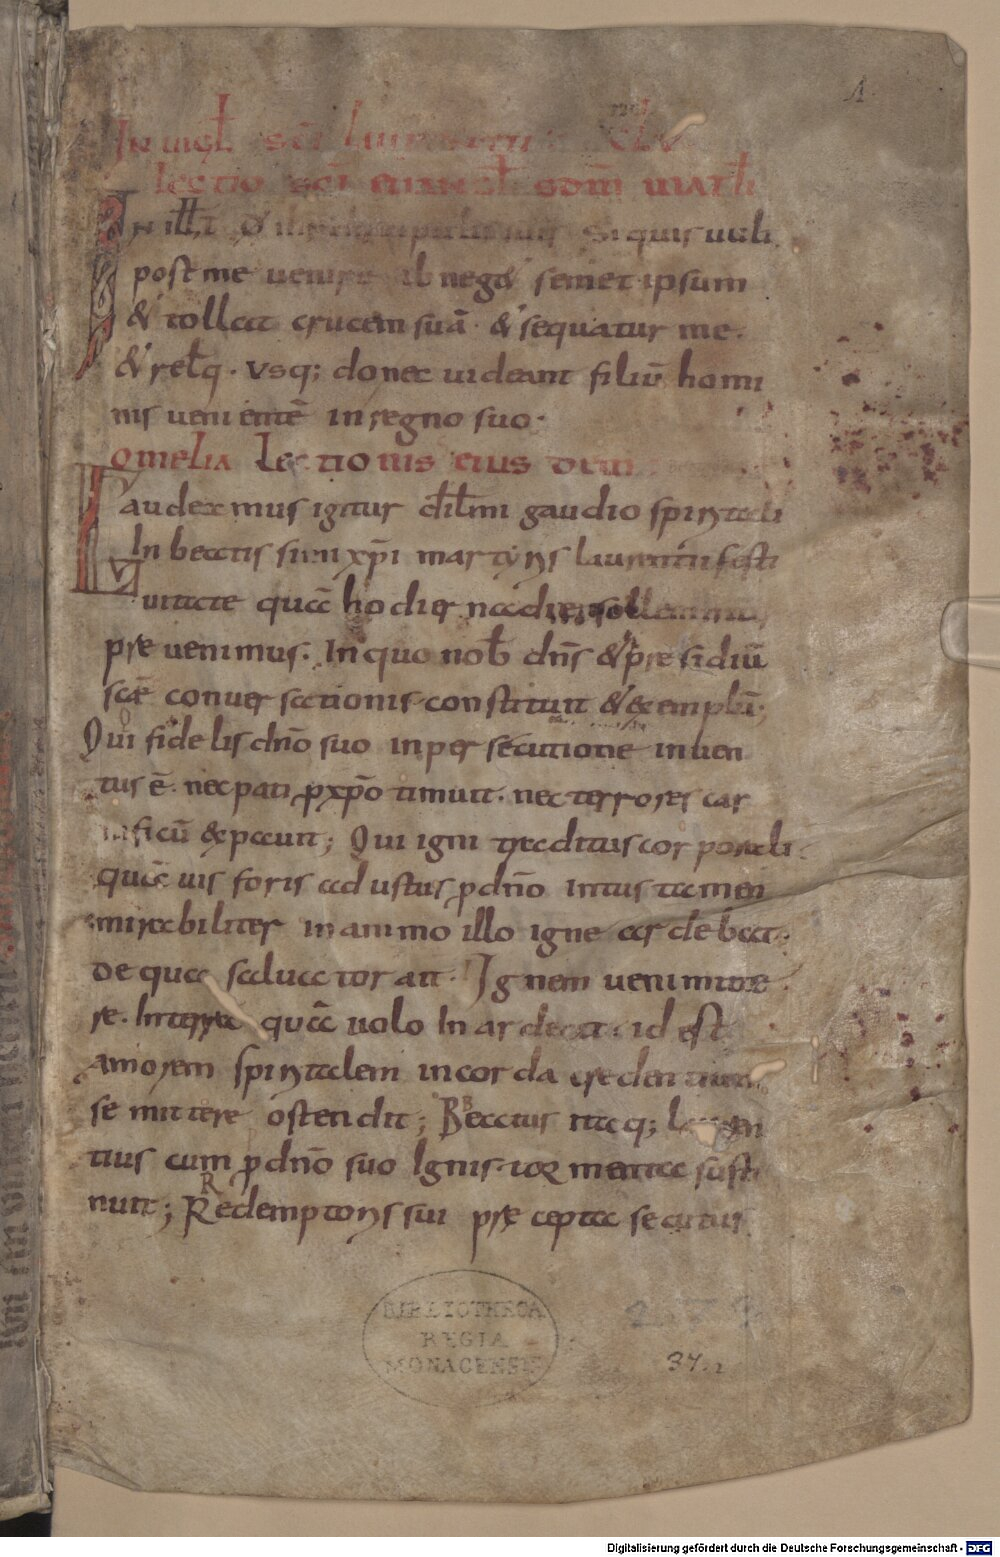 1
In uigł sci laurentii
Lectio sci euangł scdm math
In illo t Dix ihs discipulis suis Si quis uult
post me uenire abneg& semet ipsum
& tollat crucem suā · & sequatur me ·
& relq̄ · vsq; donec uideant filiū homi
nis uenientē in regno suo ·
Omelia Lectionis eius dem
Gaudeamus igitur dilmi gaudio spiritali
In beatis simi xp̄i martyris laurentii festi
uitate quā hodier na die sollemniter
preuenimus · In quo nob dn̄s & presidiū
scē conuersationis constituit & exemplū;
Qui fidelis dn̄o suo in persecutione inuen
tus ē · nec pati p xp̄o timuit · nec terrores car
nificū expauit; Qui igni traditus corporali
quā uis foris adustus p dn̄o intus tamen
mirabiliter in animo illo igne ardebat ·
de qua saluator ait · Ignem ueni mitte
re · In terra quā uolo In ardeat · id est
amorem spiritalem in corda credentium
se mittere ostendit; Beatus itaq; lauren
tius cum p dn̄o suo Ignis tormenta susti
nuit; Redemptoris sui precepta secutus
BIBLIOTHECA
REGIA
MONACENSIS
Digitalisierung gefördert durch die Deutsche Forschungsgemeinschaft - DFG